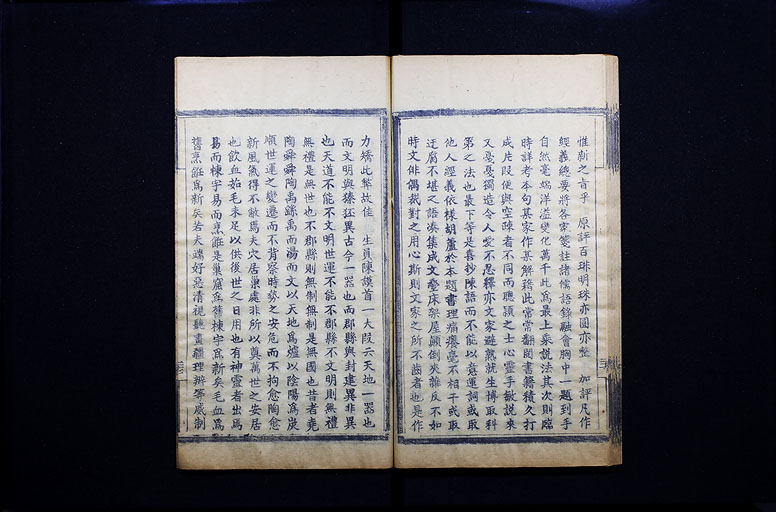 惟新之言乎 原評百琲明珠亦圓亦堅 加評凡作
經義總要將各家箋註諸儒語錄融會胸中一題到手
自然毫端洋溢變化萬千此爲最上乘說法其次則臨
時詳考本句某家作某解籍此常常翻閱書籍積久打
成片段便與空疎者不同而聰穎之士心靈手敏說來
又戛戛獨造令人愛不忍釋亦文家避熟就生博取科
第之法也最下等是喜抄陳語而不能以意運詞或取
他人經義依樣胡蘆於本題書理痛癢毫不相干或取
迂腐不堪之語湊集成文疊床架屋顚倒夾雜反不如
時文俳偶裁對之用心斯則文家之所不齒者也是作
力矯此弊故佳 生員陳謨首一大段云天地一器也
而文明與獉狉異古今一器也而郡縣與封建異非異
也天道不能不文明世運不能不郡縣不文明則無禮
無禮是無世也不郡縣則無制無制是無國也昔者堯
陶舜舜陶禹繇禹而湯而文以天地爲爐以陰陽爲炭
順世運之變遷而不背察時勢之安危而不拘愈陶愈
新風氣得不敝焉夫穴居巢處非所以奠萬世之安居
也飲血茹毛未足以供後世之日用也有神靈者出焉
易而棟宇易而烹飪是巢窟爲舊棟宇爲新矣毛血爲
舊烹飪爲新矣若夫端好惡清視聽畫疆理辨等威制